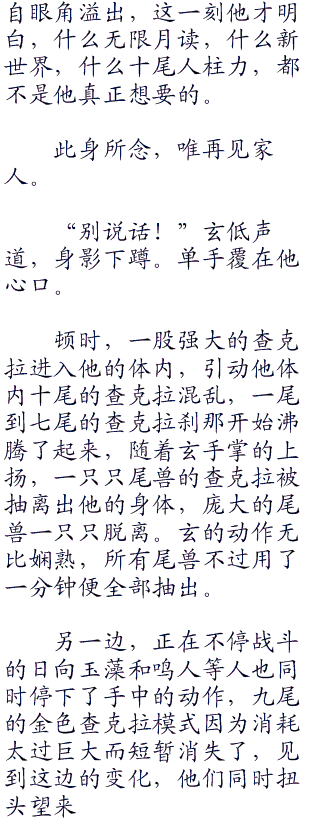 自眼角溢出，这一刻他才明
白，什么无限月读，什么新
世界，什么十尾人柱力，都
不是他真正想要的。
此身所念，唯再见家
人。
“别说话！”玄低声
道，身影下蹲。单手覆在他
心口。
顿时，一股强大的查克
拉进入他的体内，引动他体
内十尾的查克拉混乱，一尾
到七尾的查克拉刹那开始沸
腾了起来，随着玄手掌的上
扬，一只只尾兽的查克拉被
抽离出他的身体，庞大的尾
兽一只只脱离。玄的动作无
比娴熟，所有尾兽不过用了
一分钟便全部抽出。
另一边，正在不停战斗
的日向玉藻和鸣人等人也同
时停下了手中的动作，九尾
的金色查克拉模式因为消耗
太过巨大而短暂消失了，见
到这边的变化，他们同时扭
头望来